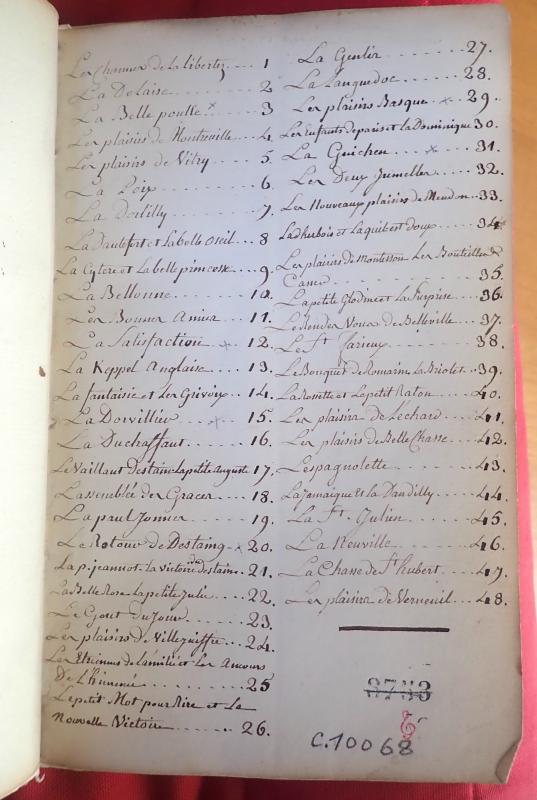 Les Charmes de la libertez 1
La Delaise 2
La Belle poulle x 3
Les plaisirs de Montreuille 4.
Les plaisirs de Vitry 5.
La Poix 6.
La Dortilly 7.
La Dautefort et La belle Oseil 8
La Cytere et La belle princesse 9.
La Bellonne 10.
Les Bonnes Amies 11.
La Satisfaction x 12.
La Keppel Anglaise 13.
La fantaisie et Les Grivois 14.
La Dorvillier x 15.
La Duchaffaut 16.
Le Vaillant Destain La petite Auguste 17.
L'assemblée des Graces 18.
La paul Jonnes 19.
Le Retour de Destaing x 20.
La p. jeannot. la victoire de destaine 21.
La Belle Rose La petite Julie 22.
Le Gout Du Jour 23.
Les plaisirs de Villejuiffre 24.
Les Etrennes de l'amitié et Les Amours
De L'himené 25
Le petit Mot pour Rire et La
Nouvelle Victoire 26.
La Genlis 27.
La Languedoc 28.
Les plaisirs Basque x 29.
Les Enfants de paris et La Dominique 30.
La Guichen x 31.
Les Deux Jumelles 32.
Les Nouveaux plaisirs de Meudon 33.
La dherbois et La quil est doux 34
Les plaisirs de Montesson Les Bouteilles
35.
La petite Glodine et La Surprise 36.
Le Rendes Vous de Belleville 37.
Le St. Farieux 38.
Le Bouquet de Romain La Briolet 39.
La Rosette et Le petit Raton 40.
Les plaisirs de Lechard 41.
Les plaisirs de Belle Chasse 42.
L'espagnolette 43.
La Jamaique et La Dandilly 44.
La St. Julien 45.
La Neuville 46.
La Chasse de St. hubert 47.
Les plaisirs de Verneuil 48.
8753
C.10068